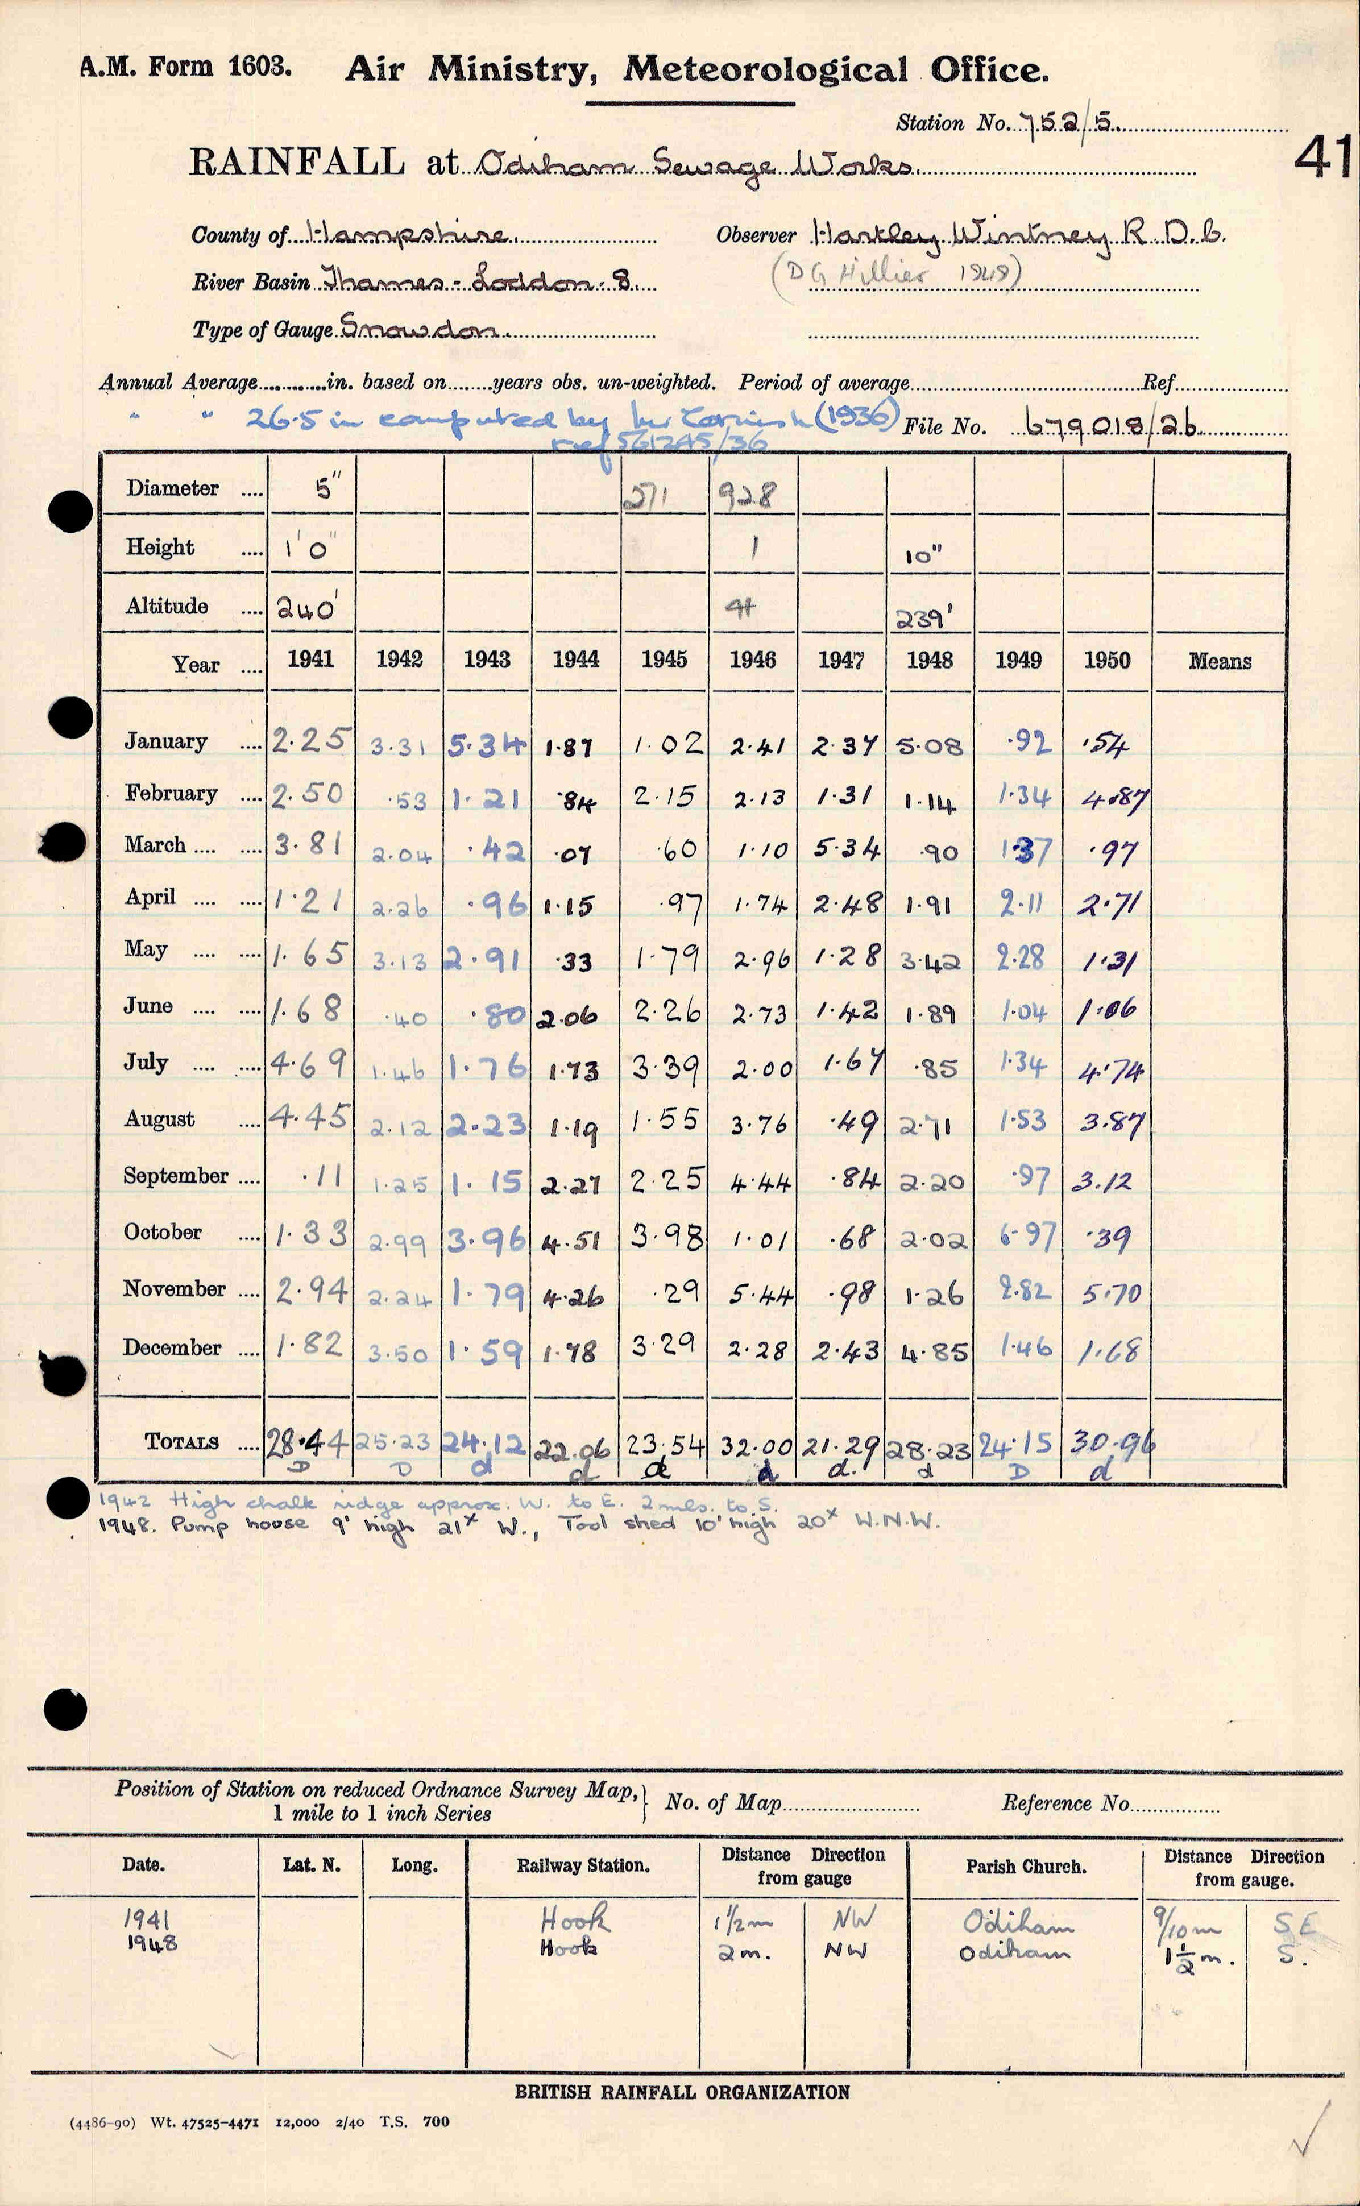 A.M. Form 1603. Air Ministry, Meteorological Office.
Station No. 752/5
41
RAINFALL at Odiham Sewage Works
County of Hampshire Observer Hartley Wintney R.D.C.
River Basin Thames - Loddon. 8. (D G Hillier 1949)
Type of Gauge Snowdon
Annual Average in. based on years obs. un-weighted. Period of average Ref
" " 26.5 in computed by Mr (1936) File No. 679018/26
ref 561245/36
Diameter .... 5" 571 928
Height .... 1'0" 1 10"
Altitude .... 240' 4 239'
Year .... 1941 1942 1943 1944 1945 1946 1947 1948 1949 1950 Means
January .... 2.25 3.31 5.34 1.87 1.02 2.41 2.37 5.08 .92 .54
February .... 2.50 .53 1.21 .84 2.15 2.13 1.31 1.14 1.34 4.87
March .... .... 3.81 2.04 .42 .07 .60 1.10 5.34 .90 1.37 .97
April .... .... 1.21 2.26 .96 1.15 .97 1.74 2.48 1.91 2.11 2.71
May .... .... 1.65 3.13 2.91 .33 1.79 2.96 1.28 3.42 2.28 1.31
June .... .... 1.68 .40 .80 2.06 2.26 2.73 1.42 1.89 1.04 1.06
July .... .... 4.69 1.46 1.76 1.73 3.39 2.00 1.67 .85 1.34 4.74
August .... 4.45 2.12 2.23 1.19 1.55 3.76 .49 2.71 1.53 3.87
September .... .11 1.25 1.15 2.27 2.25 4.44 .84 2.20 .97 3.12
October .... 1.33 2.99 3.96 4.51 3.98 1.01 .68 2.02 6.97 .39
November .... 2.94 2.24 1.79 4.26 .29 5.44 .98 1.26 2.82 5.70
December .... 1.82 3.50 1.59 1.78 3.29 2.28 2.43 4.85 1.46 1.68
TOTALS .... 28.44 25.23 24.12 22.06 23.54 32.00 21.29 28.23 24.15 30.96
D D d d d d d. d D d
1942 High chalk ridge approx. W. to E. 2 mls. to S.
1948. Pump house 9' high 21x W., Tool shed 10' high 20x W.N.W.
Position of Station on reduced Ordnance Survey Map, } No. of Map Reference No.
1 mile to 1 inch Series
Date. Lat. N. Long. Railway Station. Distance Direction from gauge Parish Church. Distance Direction from gauge.
1941 Hook 1½m NW Odiham 9/10m SE
1948 Hook 2m. NW Odiham 1½m. S.
BRITISH RAINFALL ORGANIZATION
(4486-90) Wt. 47525-4471 12,000 2/40 T.S. 700